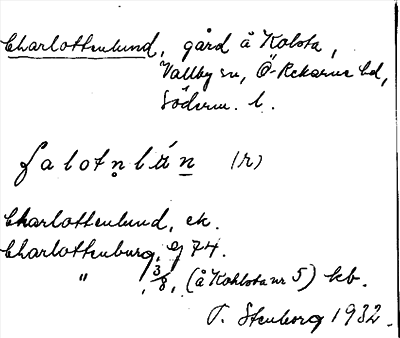 Charlottenlund, gård å Kolsta,
Vallby sn, Ö-Rekarne hd,
Söderm. l.
ʃalotn̥lún̲ (r)
Charlottenlund, ek.
Charlottenburg, G 74.
" , 3/8, (å Kohlsta nr 5) kb.
T. Stenborg 1932.